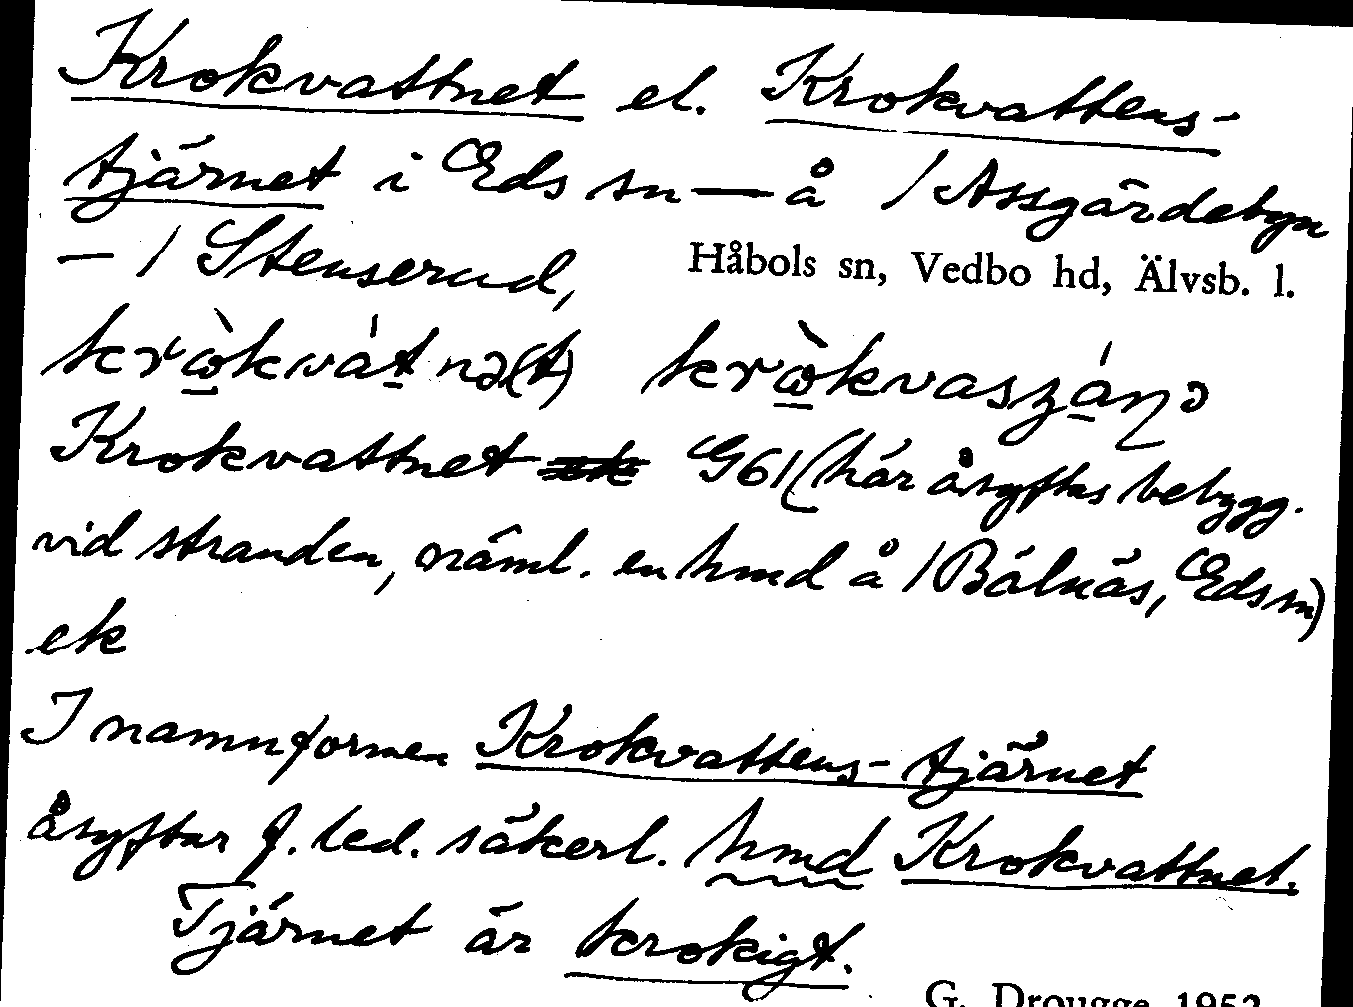 Krokvattnet el. Krokvattens-
tjärnet i Eds sn — å / Assgärdebyn
— / Stenserud,
Håbols sn, Vedbo hd, Älvsb. l.
Krokvattnet G61 (här åsyftas bebygg.
vid stranden, näml. en hmd å / Bälnäs, Eds sn)
ek
I namnformen Krokvattens-tjärnet
åsyftar f. led. säkerl. hmd Krokvattnet.
Tjärnet är krokigt.
G. Drougge 1952